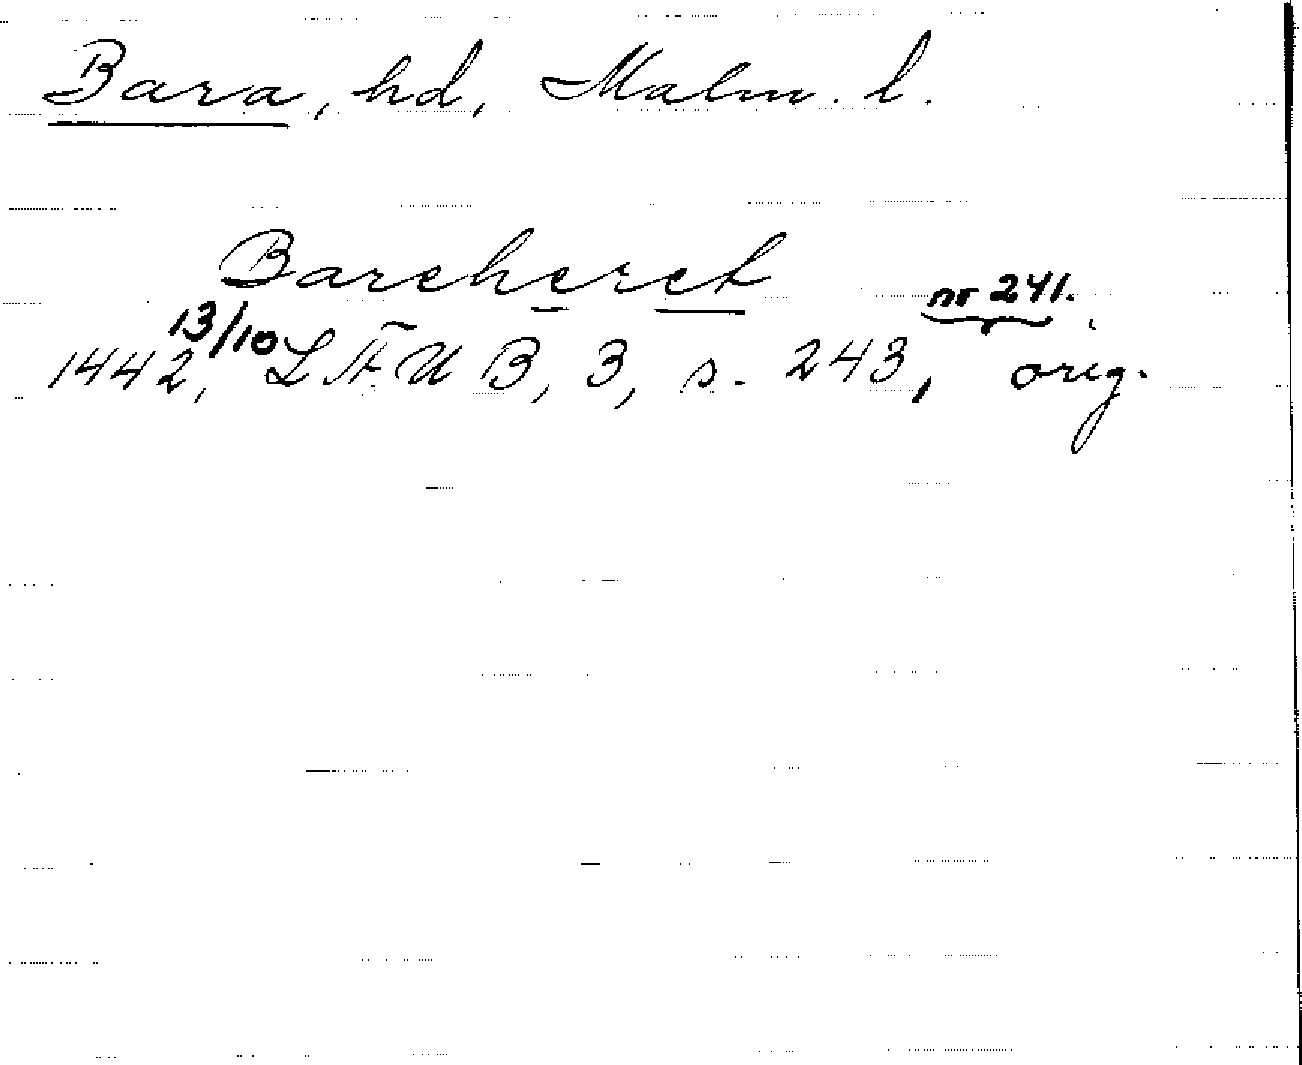 Bara, hd, Malm. l.
Bareheret
1442, 13/10 LÄUB, 3, s. 243, nr 241. orig.